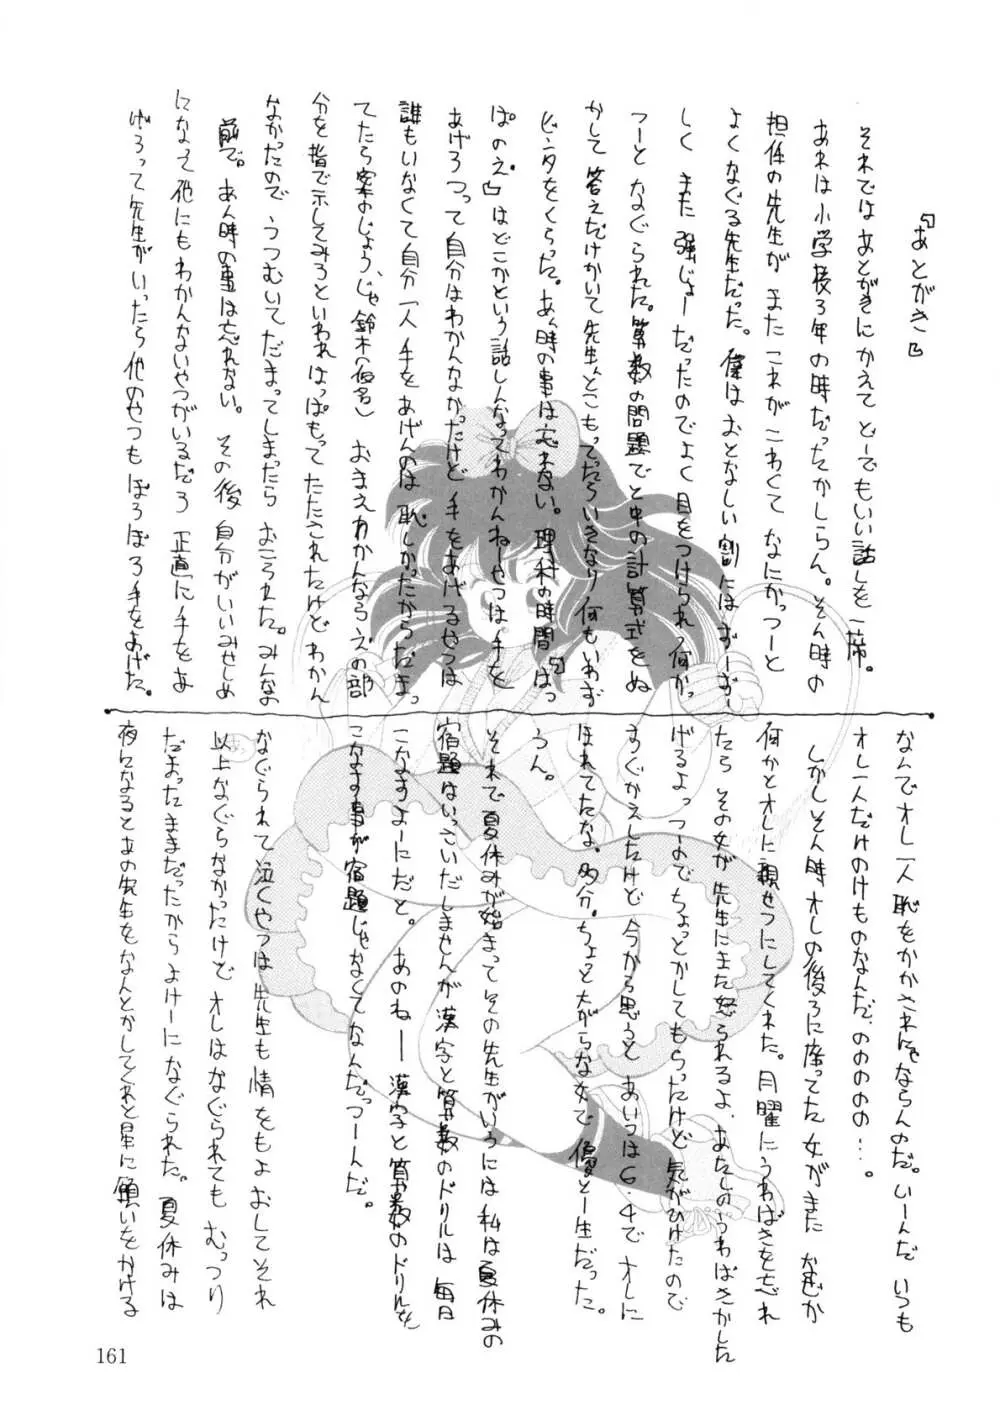 『あとがき』
それではあとがきにかえてどーでもいい話しを一席。
あれは小学校3年の時だったかしらん。そん時の
担任の先生が また これが こわくて なにかっつーと
よくなぐる先生だった。僕はおとなしい割にはずーずー
しく また 強じょーだったのでよく目をつけられ何かっ
つーと なぐられた。算数の問題でと中の計算式をぬ
かして 答えだけかいて先生んとこもってったらいきなり何もいわず
ビンタをくらった。あん時の事は忘れない。理科の時間「はっ
ぱのえ」はどこかという話しんなってわかんねーやつは手を
あげろっつって自分はわかんなかったけど手をあげるやつは
誰もいなくて自分一人手をあげんのは恥しかったからだまっ
てたら案のじょう、じゃ鈴木(仮名)おまえわかんならえの部
分を指で示してみろといわれはっぱもってたたされたけどわかん
なかったので うつむいてだまってしまったら おこられた。みんな
前で。あん時の事は忘れない。その後自分がいいみせしめ
になって他にもわかんないやつがいるだろ 正直に手をあ
げろって先生がいったら他のやつもぼろぼろ手をあげた。
なんでオレ一人恥をかかされにゃならんのだ。いーんだいつも
オレ一人だけのけものなんだ、のののの…。
しかしそん時オレの後ろに座ってた女がまた なぜか
何かとオレに親せつにしてくれた。月曜にうわばきを忘れ
たら その女が先生にまた怒られるよ、あたしのうわばきかした
げるよっつーのでちょっとかしてもらったけど 気がひけたので
すぐかえしたけど 今から思うと あいつは6.4でオレに
ほれてたな。多分。ちょっと大がらな女で 優とー生だった。
うん。
それで夏休みが始まってその先生がいうには私は夏休みの
宿題はいっさいだしませんが漢字と算数のドリルは毎日
こなすよーにだと。あのねー――漢字と算数のドリルを
こなす事が宿題じゃなくてなんだっつーんだ。
なぐられて泣くやつは先生も情をもよおしてそれ
以上なぐらなかったけどオレはなぐられても むっつり
だまったままだったからよけーになぐられた。夏休みは
夜になるとあの先生をなんとかしてくれと星に願いをかける
161